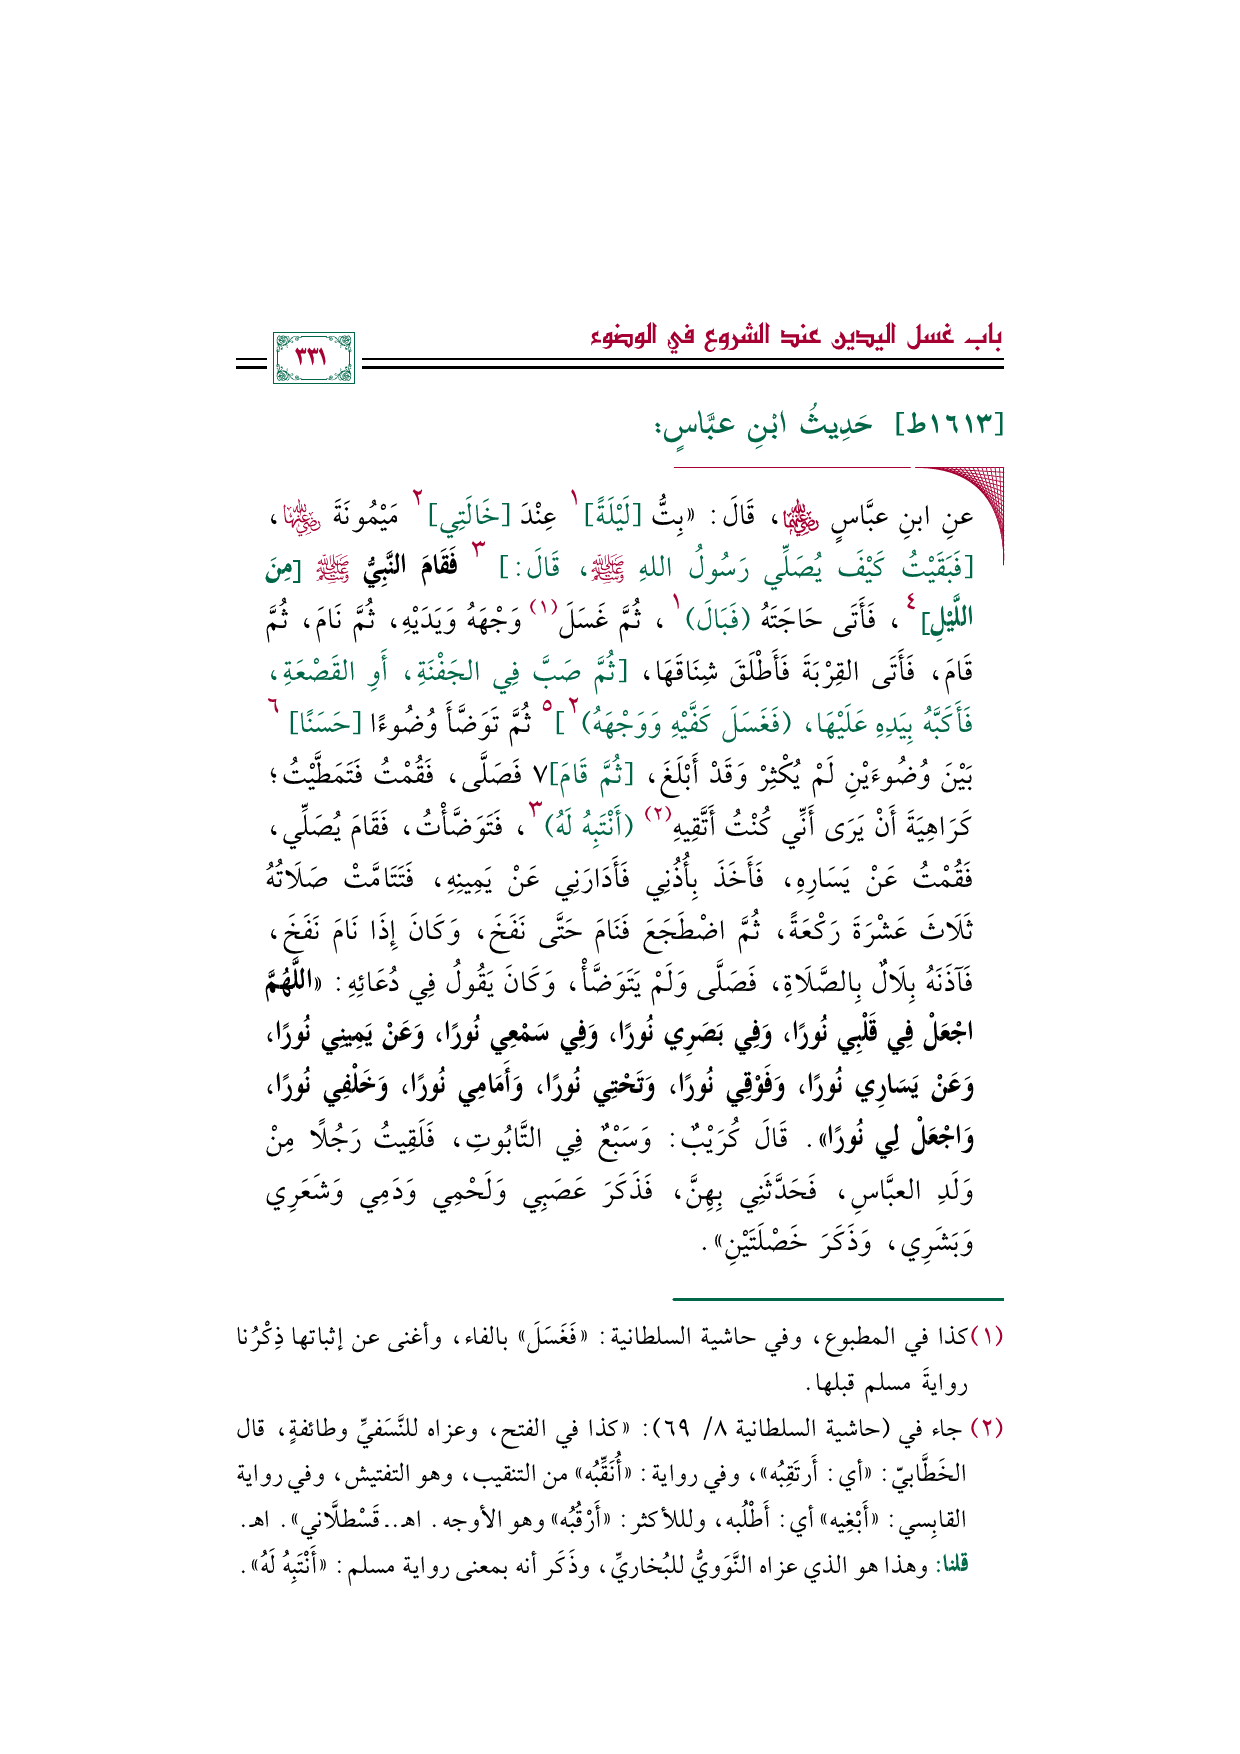 باب غسل اليدين عند الشروع في الوضوء
٣٣١
[١٦١٣ط] حَدِيثُ ابْنِ عبَّاسٍ:
عنِ ابنِ عبَّاسٍ ﵄، قَالَ: «بِتُّ [لَيْلَةً]١ عِنْدَ [خَالَتِي]٢ مَيْمُونَةَ ﵂،
[فَبَقَيْتُ كَيْفَ يُصَلِّي رَسُولُ اللهِ ﷺ، قَالَ:] ٣ فَقَامَ النَّبِيُّ ﷺ [مِنَ
اللَّيْلِ]٤، فَأَتَى حَاجَتَهُ (فَبَالَ)١، ثُمَّ غَسَلَ(١) وَجْهَهُ وَيَدَيْهِ، ثُمَّ نَامَ، ثُمَّ
قَامَ، فَأَتَى القِرْبَةَ فَأَطْلَقَ شِنَاقَهَا، [ثُمَّ صَبَّ فِي الجَفْنَةِ، أَوِ القَصْعَةِ،
فَأَكَبَّهُ بِيَدِهِ عَلَيْهَا، (فَغَسَلَ كَفَّيْهِ وَوَجْهَهُ)٢]٥ ثُمَّ تَوَضَّأَ وُضُوءًا [حَسَنًا]٦
بَيْنَ وُضُوءَيْنِ لَمْ يُكْثِرْ وَقَدْ أَبْلَغَ، [ثُمَّ قَامَ]٧ فَصَلَّى، فَقُمْتُ فَتَمَطَّيْتُ؛
كَرَاهِيَةَ أَنْ يَرَى أَنِّي كُنْتُ أَتَّقِيهِ(٢) (أَنْتَبِهُ لَهُ)٣، فَتَوَضَّأْتُ، فَقَامَ يُصَلِّي،
فَقُمْتُ عَنْ يَسَارِهِ، فَأَخَذَ بِأُذُنِي فَأَدَارَنِي عَنْ يَمِينِهِ، فَتَتَامَّتْ صَلَاتُهُ
ثَلَاثَ عَشْرَةَ رَكْعَةً، ثُمَّ اضْطَجَعَ فَنَامَ حَتَّى نَفَخَ، وَكَانَ إِذَا نَامَ نَفَخَ،
فَآذَنَهُ بِلَالٌ بِالصَّلَاةِ، فَصَلَّى وَلَمْ يَتَوَضَّأْ، وَكَانَ يَقُولُ فِي دُعَائِهِ: «اللَّهُمَّ
اجْعَلْ فِي قَلْبِي نُورًا، وَفِي بَصَرِي نُورًا، وَفِي سَمْعِي نُورًا، وَعَنْ يَمِينِي نُورًا،
وَعَنْ يَسَارِي نُورًا، وَفَوْقِي نُورًا، وَتَحْتِي نُورًا، وَأَمَامِي نُورًا، وَخَلْفِي نُورًا،
وَاجْعَلْ لِي نُورًا». قَالَ كُرَيْبٌ: وَسَبْعٌ فِي التَّابُوتِ، فَلَقِيتُ رَجُلًا مِنْ
وَلَدِ العبَّاسِ، فَحَدَّثَنِي بِهِنَّ، فَذَكَرَ عَصَبِي وَلَحْمِي وَدَمِي وَشَعَرِي
وَبَشَرِي، وَذَكَرَ خَصْلَتَيْنِ».
(١) كذا في المطبوع، وفي حاشية السلطانية: «فَغَسَلَ» بالفاء، وأغنى عن إثباتها ذِكْرُنا
روايةَ مسلم قبلها.
(٢) جاء في (حاشية السلطانية ٨/ ٦٩): «كذا في الفتح، وعزاه للنَّسَفيِّ وطائفةٍ، قال
الخَطَّابيّ: «أي: أَرتَقِبُه»، وفي رواية: «أُنَقِّبُه» من التنقيب، وهو التفتيش، وفي رواية
القابِسي: «أَبْغِيه» أي: أَطْلُبه، ولللأكثر: «أَرْقُبُه» وهو الأوجه. اهـ.. قَسْطلَّاني». اهـ.
قلنا: وهذا هو الذي عزاه النَّوَويُّ للبُخاريِّ، وذَكَر أنه بمعنى رواية مسلم: «أَنْتَبِهُ لَهُ».